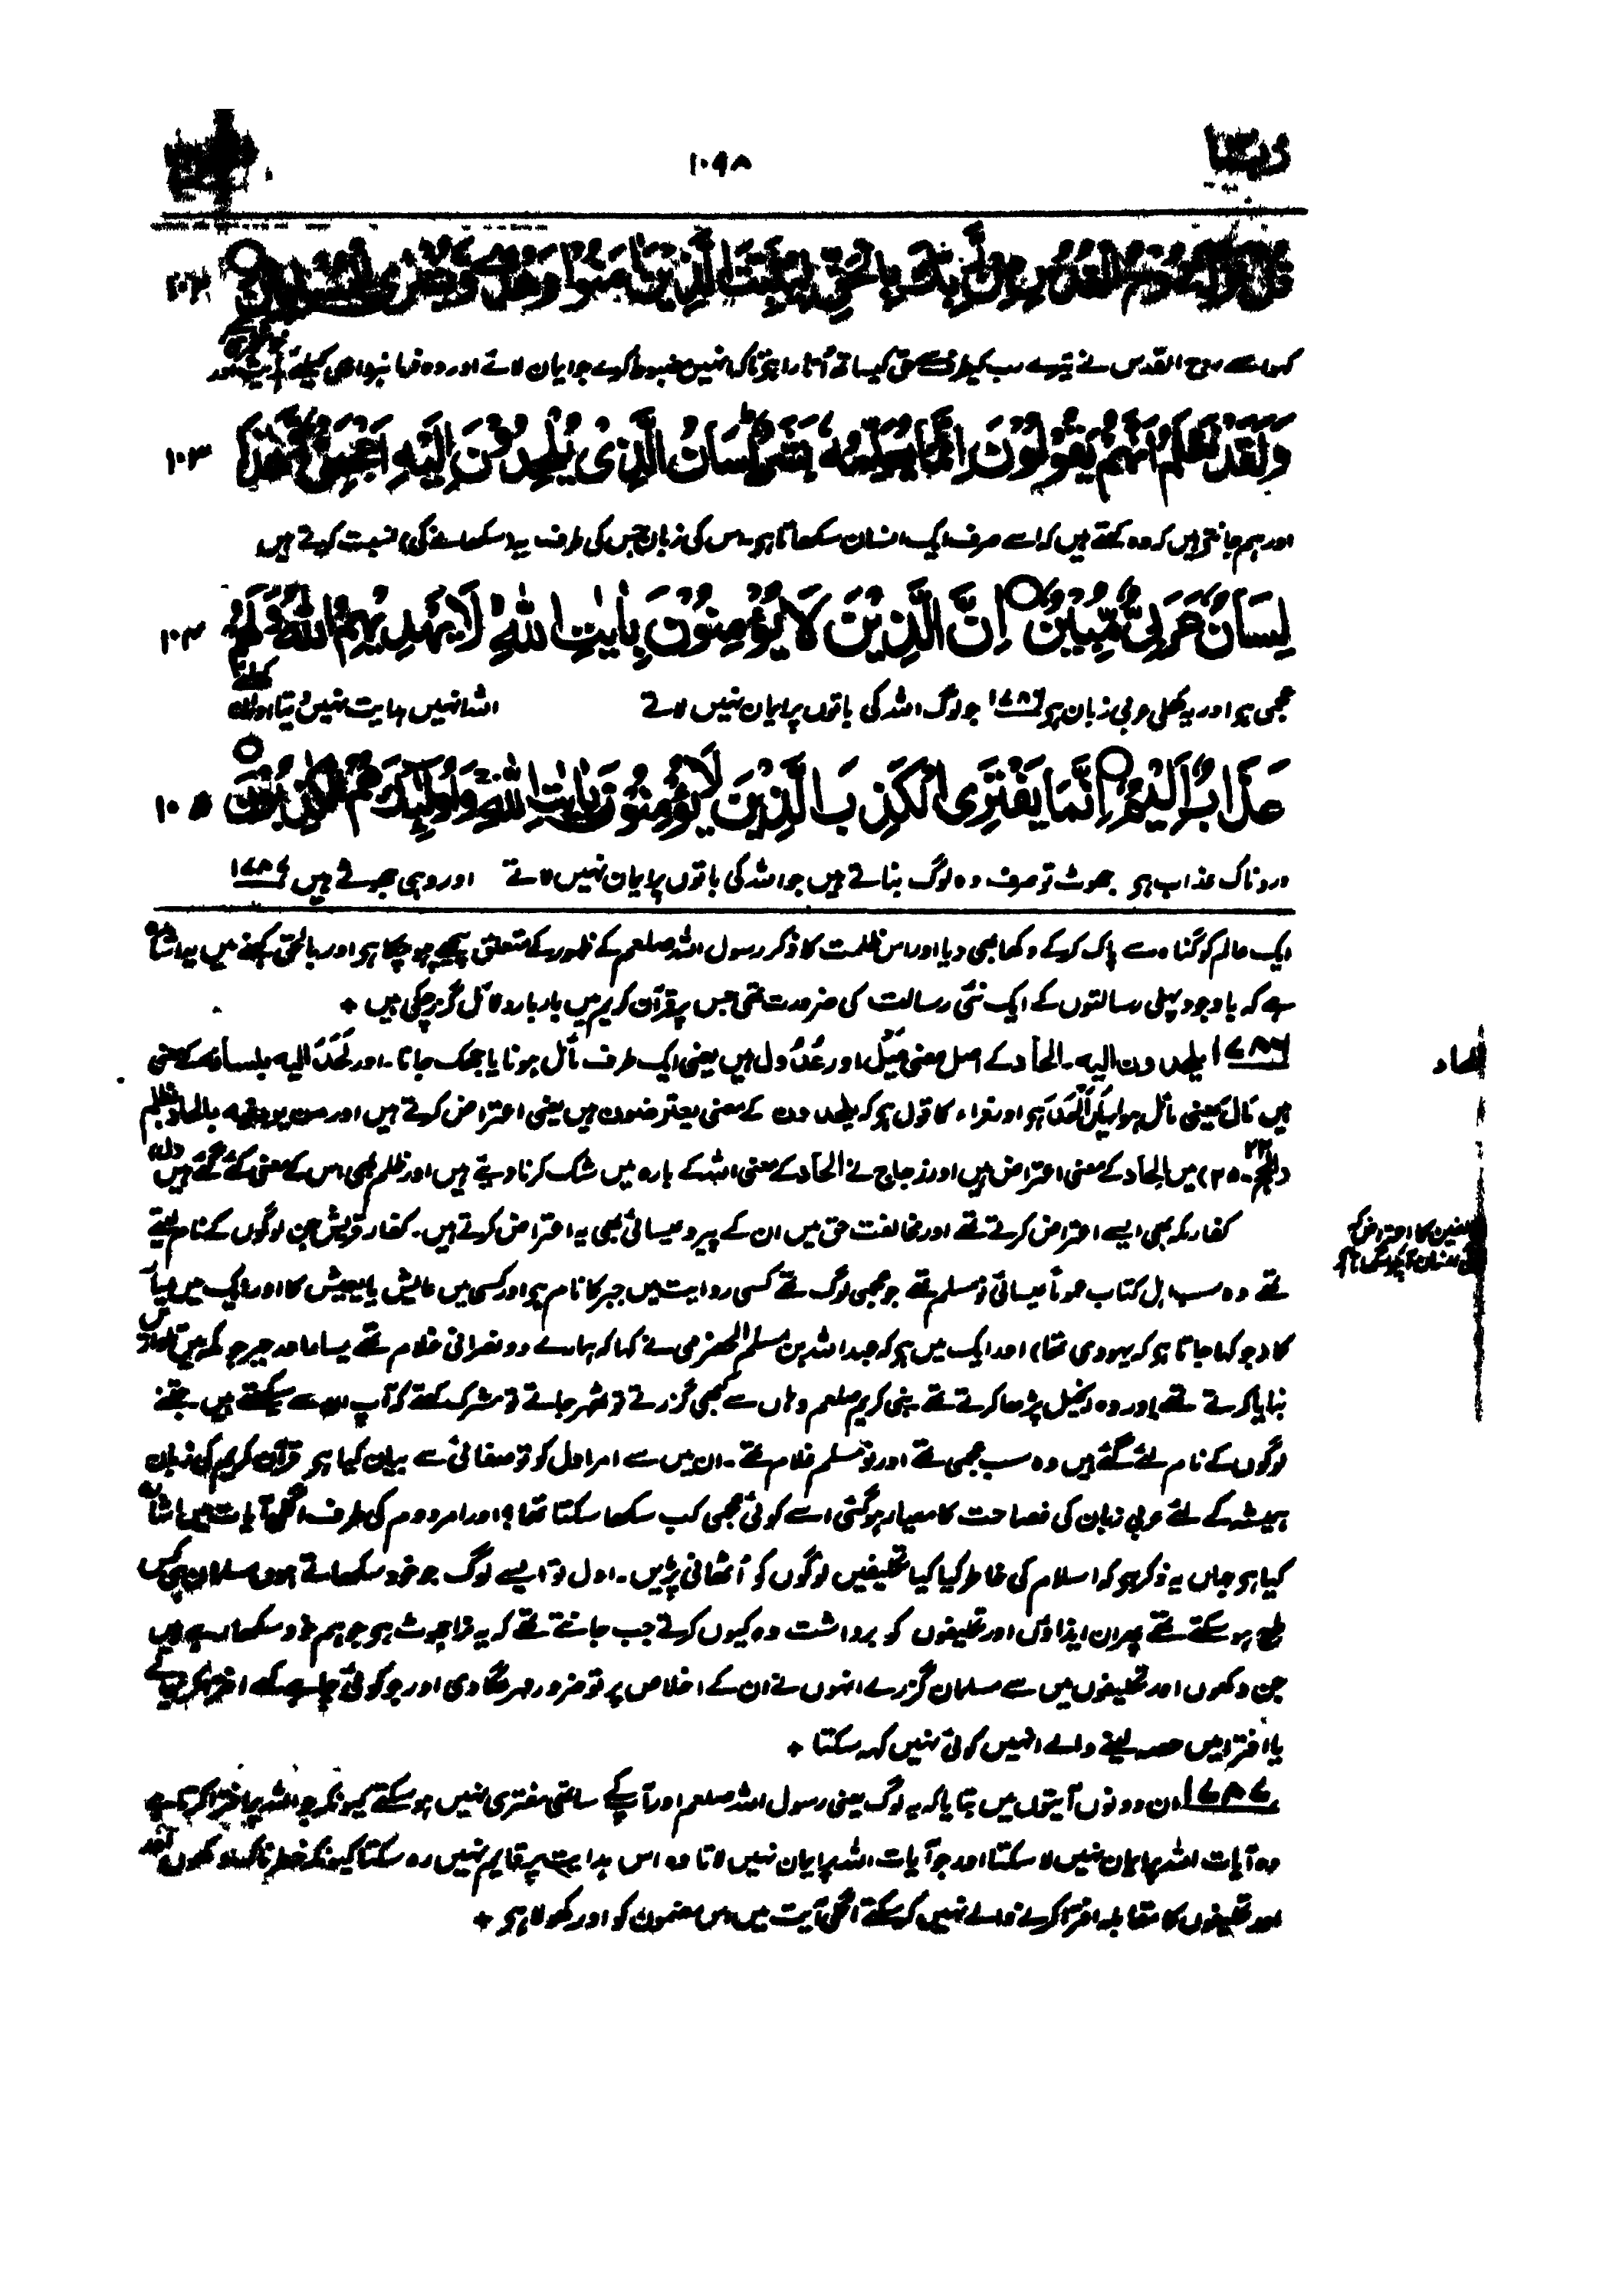 ربما
۱۰۹۸
قُلْ نَزَّلَهٗ رُوْحُ الْقُدُسِ مِنْ رَّبِّكَ بِالْحَقِّ لِيُثَبِّتَ الَّذِيْنَ اٰمَنُوْا وَهُدًى وَّبُشْرٰى لِلْمُسْلِمِيْنَ ۱۰۲
کہو اسے روح القدس نے تیرے رب کیطرف سے حق کیساتھ اُتارا ہی تاکہ انہیں مضبوط کرے جو ایمان لائے اور وہ فرمانبرداروں کیلئے ہدایت اور
وَلَقَدْ نَعْلَمُ اَنَّهُمْ يَقُوْلُوْنَ اِنَّمَا يُعَلِّمُهٗ بَشَرٌ لِسَانُ الَّذِىْ يُلْحِدُوْنَ اِلَيْهِ اَعْجَمِىٌّ وَّهٰذَا ۱۰۳
اور ہم جانتے ہیں کہ وہ کہتے ہیں کہ اسے صرف ایک انسان سکھاتا ہی۔ اس کی زبان جس کی طرف یہ (سکھانے کی) نسبت کرتے ہیں
لِسَانٌ عَرَبِىٌّ مُّبِيْنٌ اِنَّ الَّذِيْنَ لَا يُؤْمِنُوْنَ بِاٰيٰتِ اللّٰهِ لَا يَهْدِيْهِمُ اللّٰهُ وَلَهُمْ ۱۰۴
عجمی ہی اور یہ کھلی عربی زبان ہی ۱۷۸۶ جو لوگ اللہ کی باتوں پر ایمان نہیں لاتے اللہ انہیں ہدایت نہیں دیتا اور ان کیلئے
عَذَابٌ اَلِيْمٌ اِنَّمَا يَفْتَرِى الْكَذِبَ الَّذِيْنَ لَا يُؤْمِنُوْنَ بِاٰيٰتِ اللّٰهِ وَاُولٰٓئِكَ هُمُ الْكٰذِبُوْنَ ۱۰۵
دردناک عذاب ہی جھوٹ تو صرف وہ لوگ بناتے ہیں جو اللہ کی باتوں پر ایمان نہیں لاتے اور وہی جھوٹے ہیں ۱۷۸۷
ایک عالم کو گناہ سے پاک کرکے دکھا بھی دیا اور اس ظلمت کا ذکر رسول اللہ صلعم کے ظہور کے متعلق پیچھے ہو چکا ہی اور بالحق کہنے میں یہ اشارہ
ہے کہ باوجود پہلی رسالتوں کے ایک نئی رسالت کی ضرورت تھی جس پر قرآن کریم میں بار بار دلائل گزر چکی ہیں +
۱۷۸۶ یلحدون الیہ۔ الحاد کے اصل معنی مَیْل اور عُدُوْل ہیں یعنی ایک طرف مائل ہونا یا جھک جانا۔ اور لَحَدَ الیہ بلسانہ کے معنی
ہیں مَالَ یعنی مائل ہوا یہی اَلْحَدَ ہو اور فراء کا قول ہو کہ یلحدون کے معنی یعترضون ہیں یعنی اعتراض کرتے ہیں اور من یرد فیہ بالحاد بظلم
(الحج ۲۲۔ ۲۵) میں الحاد کے معنی اعتراض ہیں اور زجاج نے الحاد کے معنی اللہ کے بارہ میں شک کرنا دیے ہیں اور ظلم بھی اس کے معنی کئے گئے ہیں (ل)
الحاد
کفار مکہ بھی ایسے اعتراض کرتے تھے اور مخالفت حق میں ان کے پیرو عیسائی بھی یہ اعتراض کرتے ہیں۔ کفار قریش جن لوگوں کے نام لیتے
مخالفین کا اعتراض کہ
تھے وہ سب اہل کتاب عموماً عیسائی نو مسلم تھے جو عجمی لوگ تھے کسی روایت میں جبر کا نام ہو اور کسی میں عائش یا یعیش کا اور ایک میں
کا (جو کہا جاتا ہو کہ یہودی تھا) اور ایک میں ہو کہ عبد اللہ بن مسلم الحضرمی نے کہا کہ ہمارے دو نصرانی غلام تھے یسار اور جبر جو مکہ میں تلواریں
بنایا کرتے تھے اور وہ انجیل پڑھا کرتے تھے۔ نبی کریم صلعم وہاں سے کبھی گزرتے تو ٹھہر جاتے تو مشرک کہتے کہ آپ ان سے سیکھتے ہیں۔ جتنے
لوگوں کے نام لئے گئے ہیں وہ سب عجمی تھے اور نو مسلم غلام تھے۔ ان میں سے امر اول کو تو صفائی سے بیان کیا ہی قرآن کریم کی زبان
ہمیشہ کے لئے عربی زبان کی فصاحت کا معیار ہو گئی اسے کوئی عجمی کب سکھا سکتا تھا؟ اور امر دوم کی طرف اگلی آیات میں اشارہ
کیا ہو جہاں یہ ذکر ہو کہ اسلام کی خاطر کیا کیا تکلیفیں لوگوں کو اُٹھانی پڑیں۔ اول تو ایسے لوگ جو خود سکھاتے ہوں مسلمان ہی کس
طرح ہو سکتے تھے پھر ان ایذاؤں اور تکلیفوں کو برداشت وہ کیوں کرتے جب جانتے تھے کہ یہ نرا جھوٹ ہو جو ہم خود سکھا رہے ہیں
جن دکھوں اور تکلیفوں میں سے مسلمان گزرے انہوں نے ان کے اخلاص پر تو ضرور مہر لگا دی اور جو کوئی چاہے کہے
یا افترا میں حصہ لینے والے انہیں کوئی نہیں کہہ سکتا +
۱۷۸۷ ان دونوں آیتوں میں بتایا کہ یہ لوگ یعنی رسول اللہ صلعم اور آپ کے ساتھی مفتری نہیں ہو سکتے کیونکہ جو اللہ پر افترا کرتا ہے
وہ آیات اللہ پر ایمان نہیں لا سکتا اور جو آیات اللہ پر ایمان نہیں لاتا وہ اس ہدایت پر قایم نہیں رہ سکتا کیونکہ خطرناک دکھوں
اور تکلیفوں کا مقابلہ افترا کرنے والے نہیں کر سکتے اگلی آیت میں اس مضمون کو اور کھولا ہی +